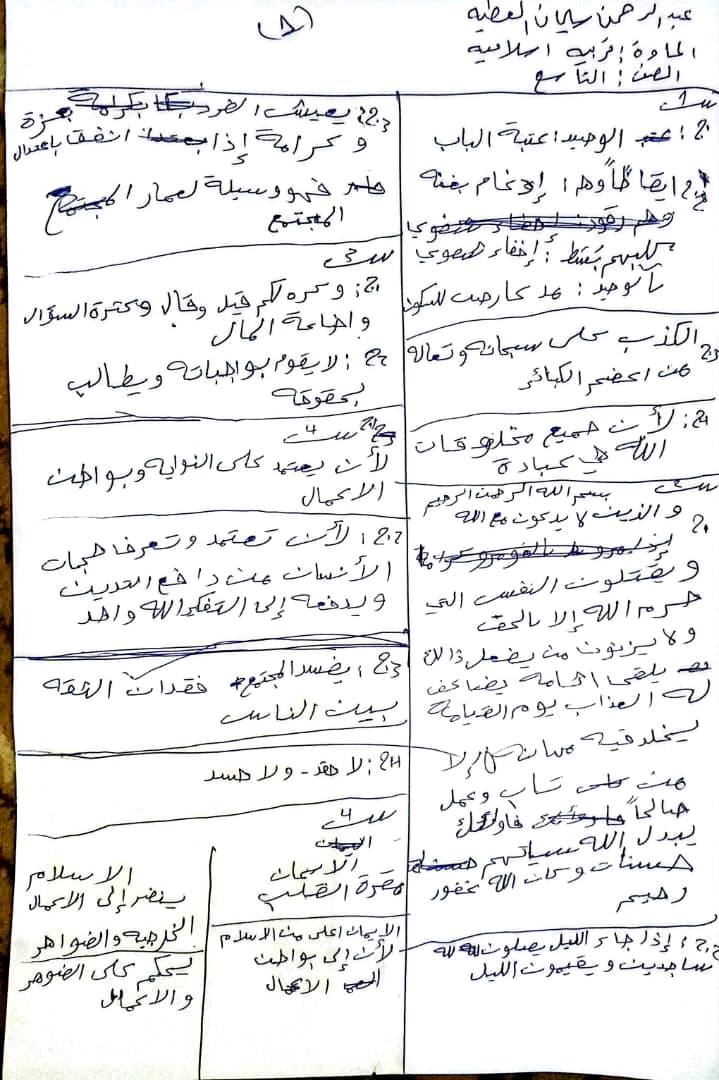 عبد الرحمن سليمان العطيه
(٨)
المادة: تربيه اسلاميه
الصف: التاسع
س١
ج١: الوصيد: عتبة الباب
ج٢: ايقاظاً وهم: إدغام بغنه
كلبهم بَسط: إخفاء شفوي
بالوصيد: مد عارض للسكون
ج٣ الكذب على سبحانه وتعاله
من اعضم الكبائر
ج٤: لأن جميع مخلوقات
الله في عبادة
س٢
بسم الله الرحمن الرحيم
ج١ و الذين لا يدعون مع الله
ويقتلون النفس التي
حرم الله إلا بالحق
ولا يزنون من يفعل ذالك
يلقى اثامه يضاعف
له العذاب يوم القيامة
يخلد فيه مهانه إلا
من تاب وعمل
صالحاً فاولئك
يبدل الله سياتهم
حسنات وكان الله غفور
رحيم
ج٢: إذا جاء الليل يصلون لله
ساجدين ويقيمون الليل
ج٣: يعيش الفرد بعزة
وكرامة إذا انفق باعتدال
فهو وسيلة لعمار
المجتمع
س٣
ج١: وكره لكم قيل وقال وكثرة السؤال
واضاعة المال
ج٢: لا يقوم بواجباته ويطالب
بحقوقه
س٤
ج١
لأن يعتمد على النوايه وبواطن
الاعمال
ج٢: لأن تعتمد وتعرف حجات
الأنسان من دافع التدين
ويدفعه إلى التفكر الله واحد
ج٣: يفسد المجتمع فقدان الثقه
بين الناس
ج٤: لا حقد - ولا حسد
س٤
الايمان
مقرة القلب
الايمان اعلى من الاسلام
لأن إلى بواطن
الاعمال
الاسلام
ينضر إلى الاعمال
الخارجيه والضواهر
يحكم على الضوهر
والاعمال